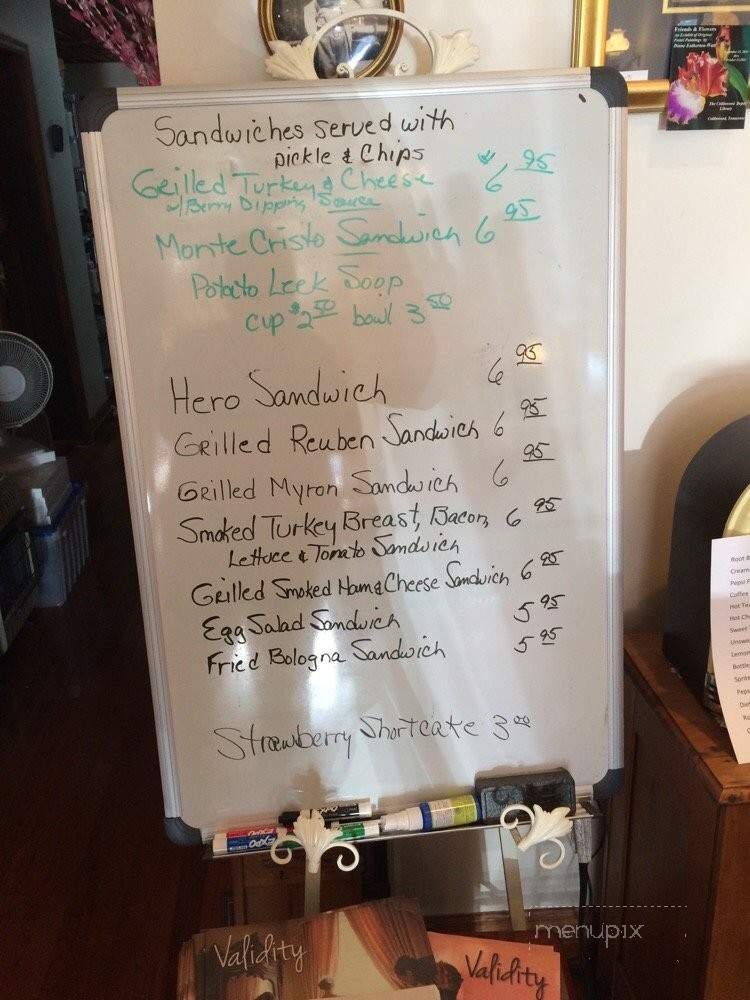 Sandwiches served with
pickle & Chips
Grilled Turkey & Cheese $6 95
w/Berry Dipping Sauce
Monte Cristo Sandwich 6 95
Potato Leek Soop
cup $2 50 bowl 3 50
Hero Sandwich 6 95
Grilled Reuben Sandwich 6 95
Grilled Myron Sandwich 6 95
Smoked Turkey Breast, Bacon, 6 95
Lettuce & Tomato Sandwich
Grilled Smoked Ham & Cheese Sandwich 6 95
Egg Salad Sandwich 5 95
Fried Bologna Sandwich 5 95
Strawberry Shortcake 3 00
EXPO
EXPO
Validity
Validity
menupix
Friends & Flowers
Library
Root
Cream
Pepsi
Coffee
Hot Tea
Hot Ch
Sweet
Unswe
Lemon
Bottle
Sprite
Peps